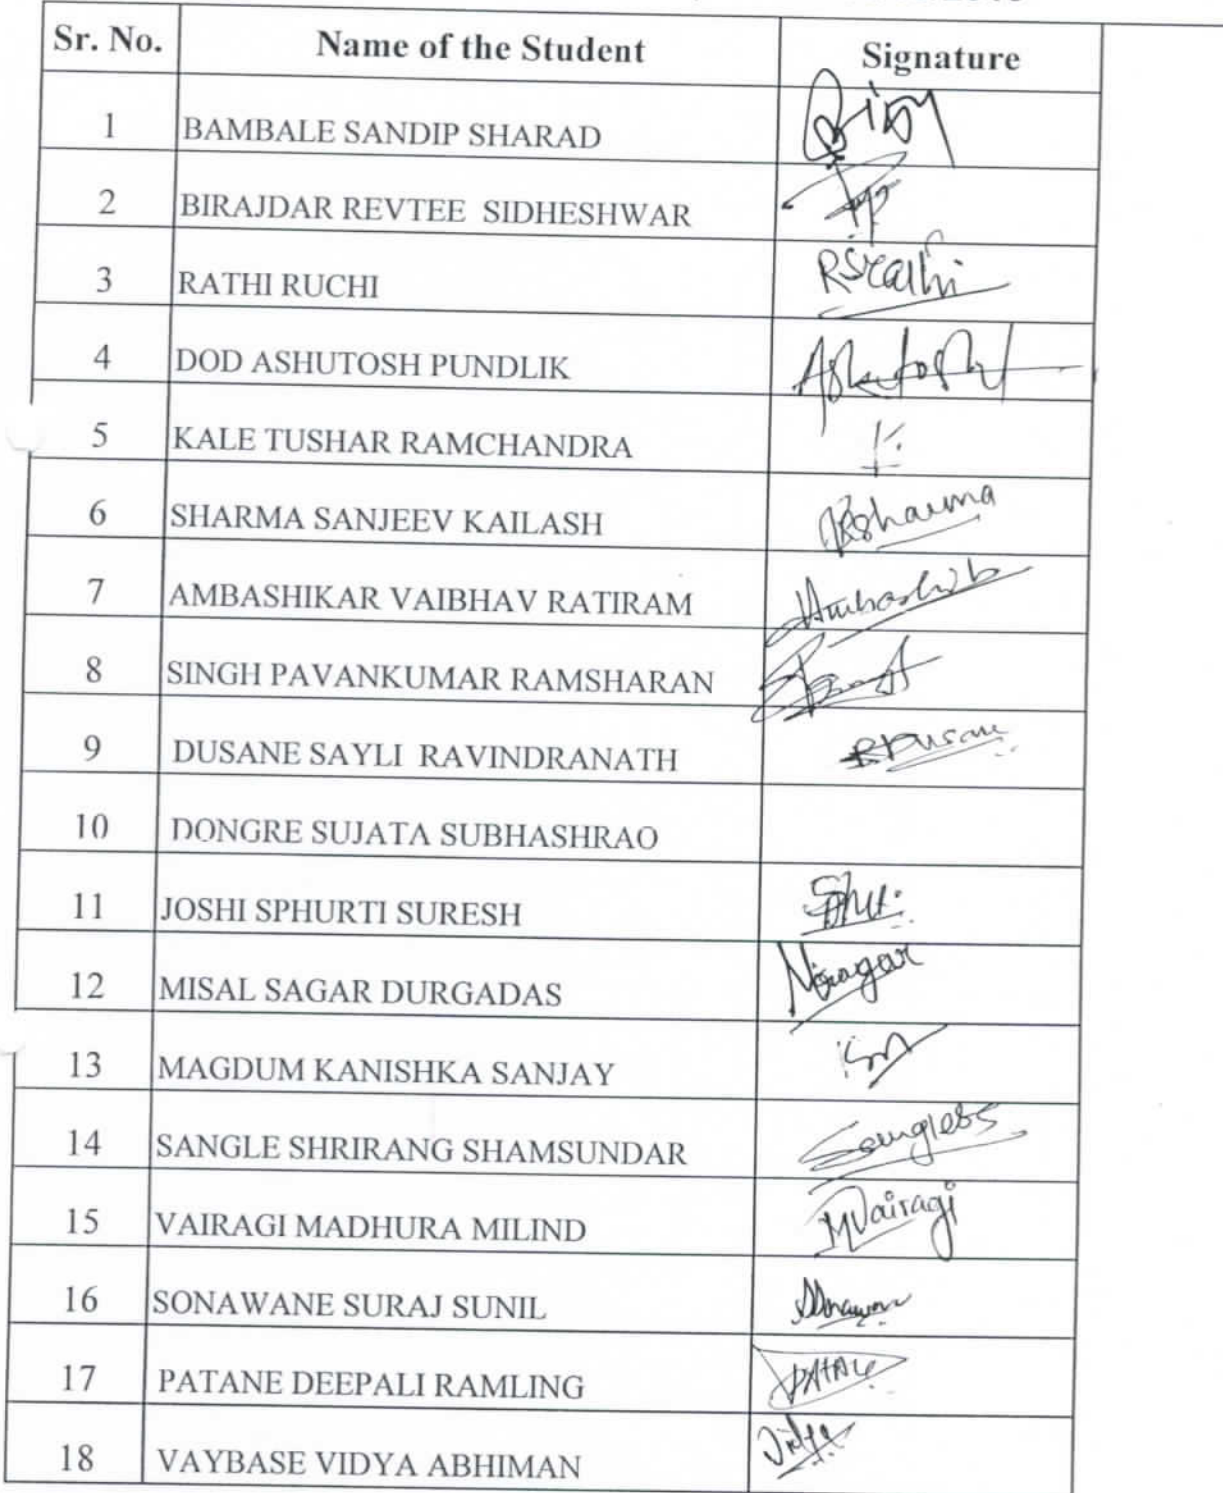 Sr. No. Name of the Student Signature
1 BAMBALE SANDIP SHARAD
2 BIRAJDAR REVTEE SIDHESHWAR
3 RATHI RUCHI RSrathi
4 DOD ASHUTOSH PUNDLIK Ashutosh
5 KALE TUSHAR RAMCHANDRA
6 SHARMA SANJEEV KAILASH
7 AMBASHIKAR VAIBHAV RATIRAM
8 SINGH PAVANKUMAR RAMSHARAN
9 DUSANE SAYLI RAVINDRANATH
10 DONGRE SUJATA SUBHASHRAO
11 JOSHI SPHURTI SURESH
12 MISAL SAGAR DURGADAS
13 MAGDUM KANISHKA SANJAY
14 SANGLE SHRIRANG SHAMSUNDAR Sangless
15 VAIRAGI MADHURA MILIND MVairagi
16 SONAWANE SURAJ SUNIL
17 PATANE DEEPALI RAMLING
18 VAYBASE VIDYA ABHIMAN Vidya